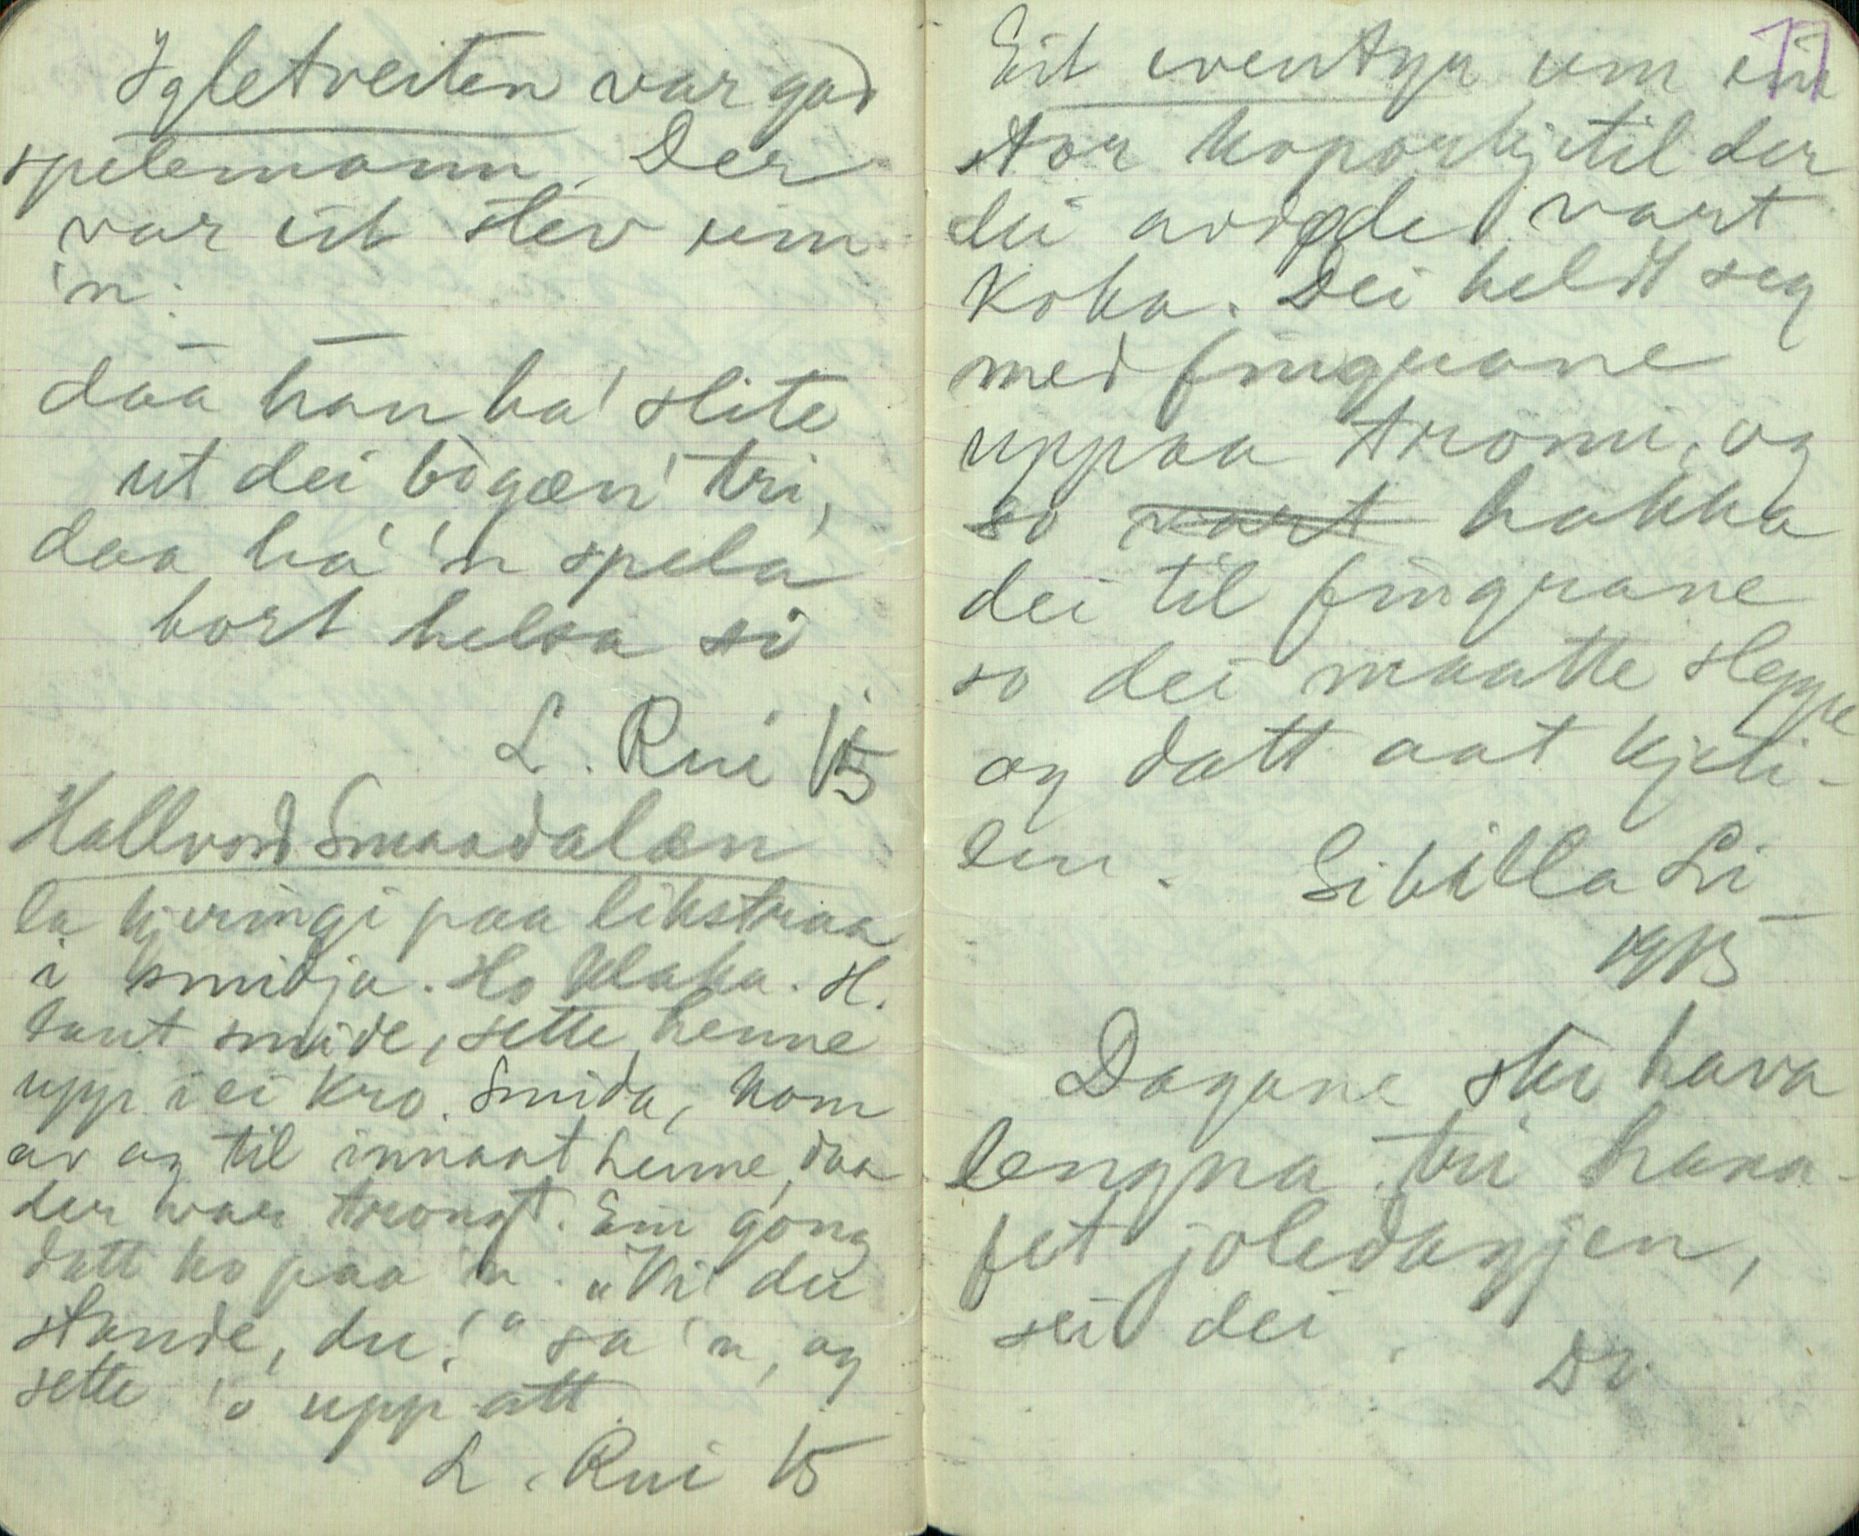 Igletveiten var god
spelemann. Der
var eit stev um
'n:
daa han ha' slite
ut dei bògæn' tri,
daa ha' 'n spela
bort helsa si
L. Rui 15
Hallvord Smaadalæn
la kjeringi paa likstraa
i smidja. Ho klaka. H.
tant smide, sette henne
upp i ei kro. Smida, kom
av og til innaat henne, daa
der var trongt. Ein gong
datt ho paa 'n. "Vil du
stande, du!" sa 'n, og
sette 'o upp att.
L. Rui 15
17
Eit eventyr um ein
stor koparkjetil der
dei vart
koka. Dei heldt seg
med fingrane
uppaa tromi, og
so vart hakka
dei til fingrane
so dei maatte sleppe
og datt aat kjeti-
len. Sibilla Li
1915
Dagane ska hava
lengna tri hana-
fet joledagjen,
sei dei.
Ds.